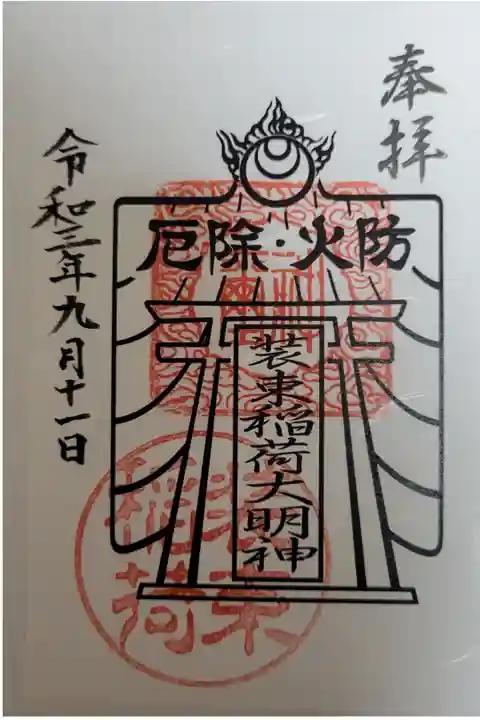 奉拝
厄除・火防
装束稲荷大明神
令和三年九月十一日
装束
稲荷